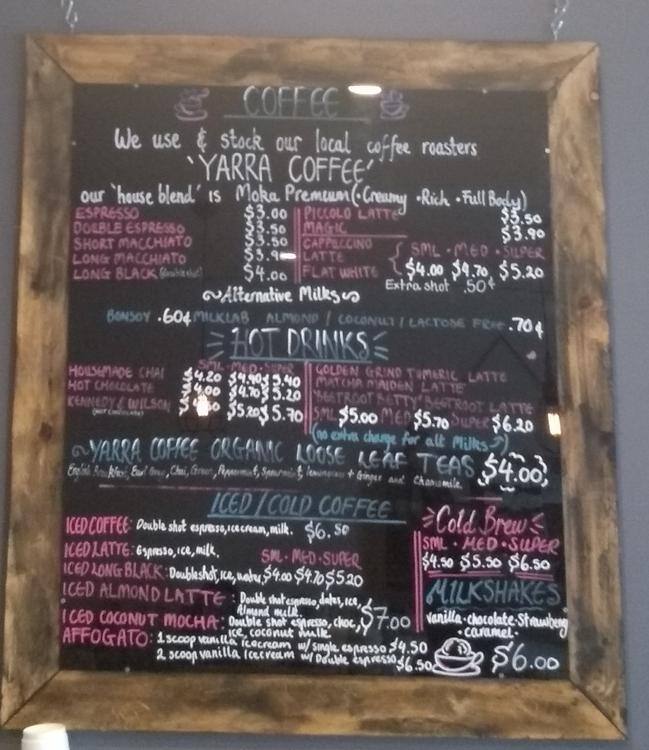 COFFEE
We use & stock our local coffee roasters
'YARRA COFFEE'
our 'house blend' is Moka Premium (•Creamy •Rich •Full Body)
ESPRESSO $3.00
DOUBLE ESPRESSO $3.50
SHORT MACCHIATO $3.50
LONG MACCHIATO
LONG BLACK (double shot) $4.00
PICCOLO LATTE $3.50
MAGIC $3.90
CAPPUCCINO
LATTE
FLAT WHITE
SML • MED • SUPER
$4.00 $4.70 $5.20
Extra shot .50¢
Alternative Milks
BONSOY .60¢ MILKLAB ALMOND / COCONUT / LACTOSE FREE .70¢
HOT DRINKS
SML • MED • SUPER
HOUSEMADE CHAI $4.20 $4.90 $5.40
HOT CHOCOLATE $4.00 $4.70 $5.20
KENNEDY & WILSON $5.20 $5.70
(HOT CHOCOLATE)
GOLDEN GRIND TUMERIC LATTE
MATCHA MAIDEN LATTE
'BEETROOT BETTY' BEETROOT LATTE
SML $5.00 MED $5.70 SUPER $6.20
(no extra charge for alt Milks)
YARRA COFFEE ORGANIC LOOSE LEAF TEAS $4.00
English Breakfast, Earl Grey, Chai, Green, Peppermint, Spearmint, lemongrass + Ginger and Chamomile.
ICED / COLD COFFEE
ICED COFFEE: Double shot espresso, ice cream, milk. $6.50
ICED LATTE: Espresso, ice, milk.
SML • MED • SUPER
ICED LONG BLACK: Double shot, ice, water, $4.00 $4.70 $5.20
ICED ALMOND LATTE: Double shot espresso, dates, ice,
Almond milk.
ICED COCONUT MOCHA: Double shot espresso, choc, $7.00
ice, coconut milk
AFFOGATO: 1 scoop vanilla icecream w/ single espresso $4.50
2 scoop vanilla icecream w/ Double espresso $6.50
Cold Brew
SML • MED • SUPER
$4.50 $5.50 $6.50
MILKSHAKES
vanilla • chocolate • Strawberry
• caramel •
$6.00